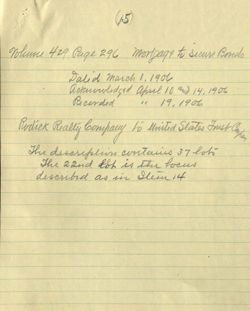 15
Volume 429 Page 296 Mortgage to Secure Bonds
Dated March 1, 1906
Acknowledged April 10 and 14, 1906
Recorded " 19, 1906
Rodick Realty Company to United States Trust Co
The description contains 37 lots
The 22nd lot is the locus
described as in Item 14